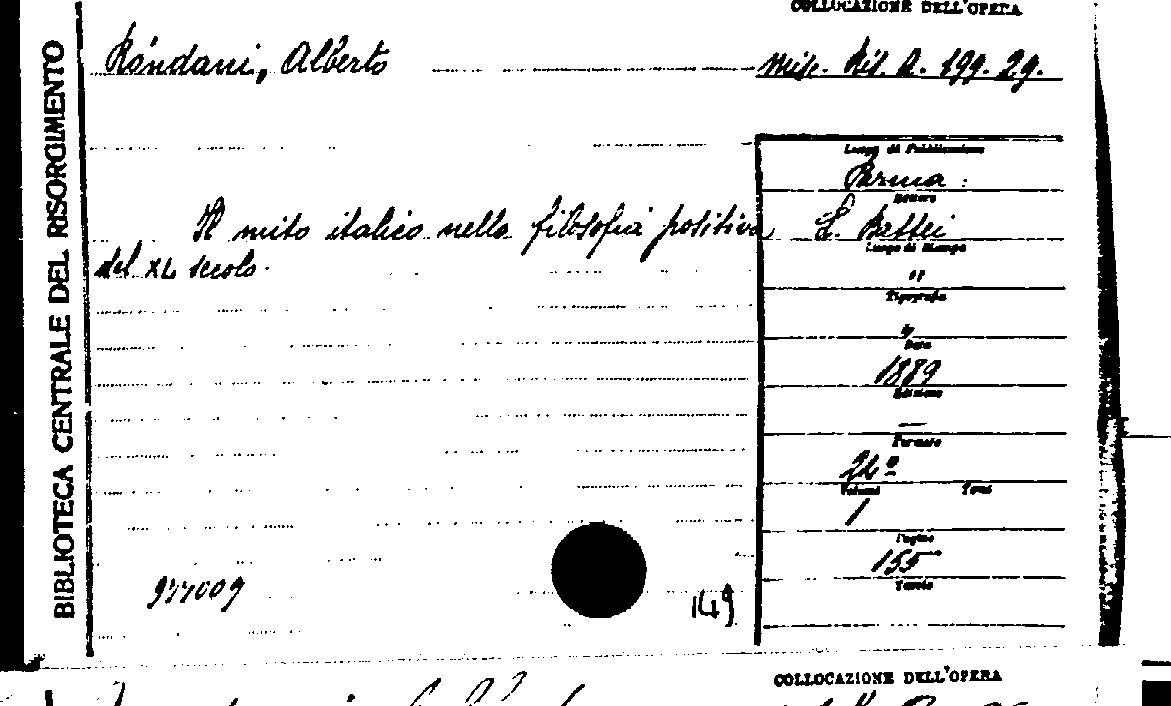 COLLOCAZIONE DELL'OPERA
Róndani, Alberto
Misc. Ris. A. 199. 29.
BIBLIOTECA CENTRALE DEL RISORGIMENTO
Luogo di Pubblicazione
Parma.
Editore
Il mito italico nella filosofia positiva
L. Battei
del XL secolo.
Luogo di Stampa
"
Tipografia
"
Data
1889
Edizione
—
Formato
24º
Volumi Tomi
1
Pagine
155
Tavole
977009
149
COLLOCAZIONE DELL'OPERA